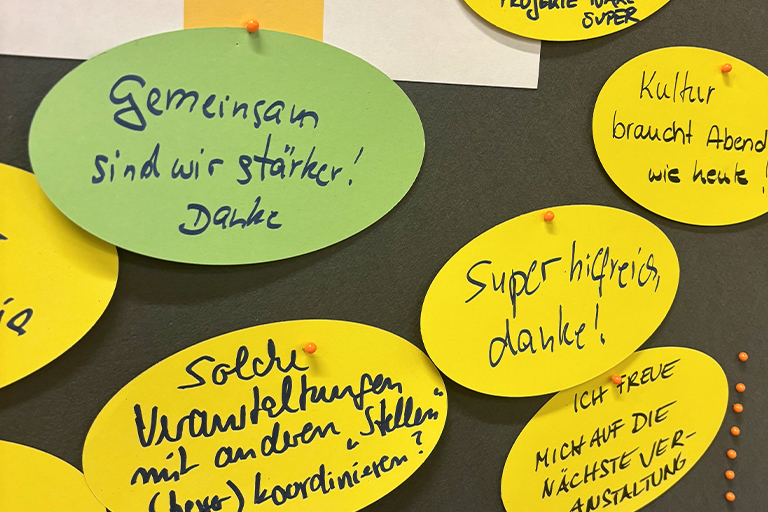 PROJEKTE WÄRE
SUPER
Kultur
braucht Abend
wie heute!
Gemeinsam
sind wir stärker!
Danke
Super hilfreich,
danke!
Solche
Veranstaltungen
mit anderen „Stellen"
(besser) koordinieren?
ICH FREUE
MICH AUF DIE
NÄCHSTE VER-
ANSTALTUNG